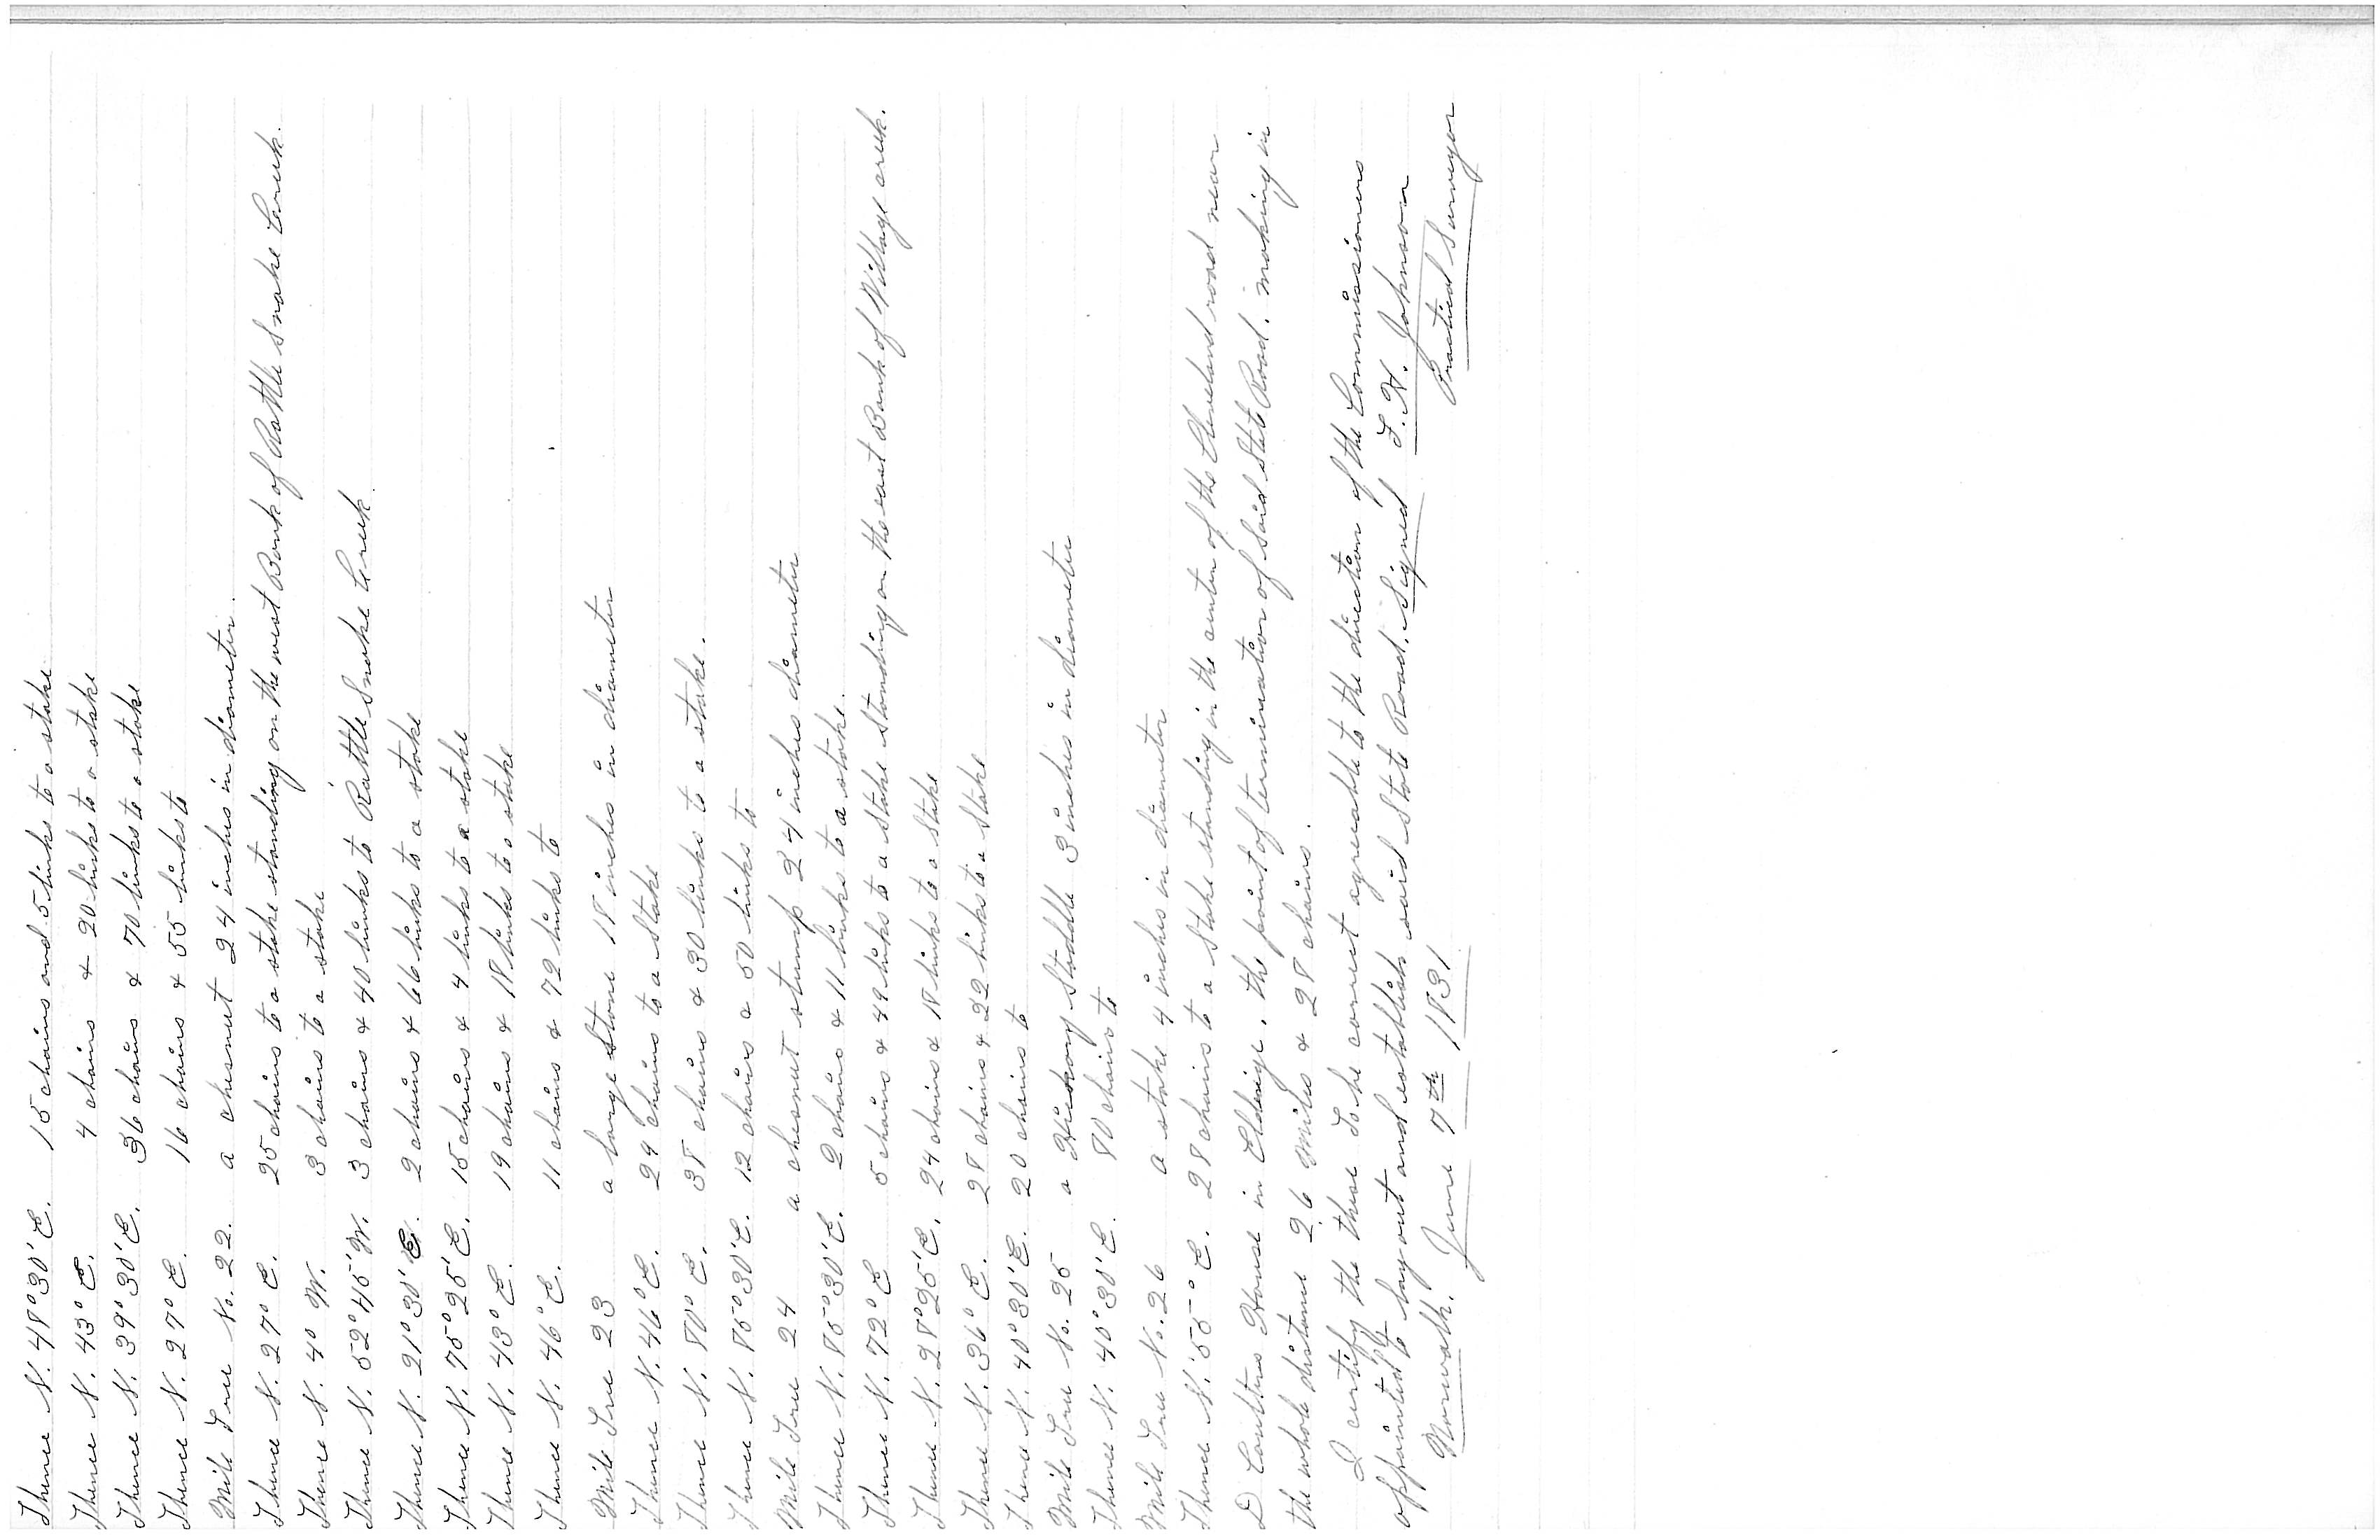 Thence N. 48° 30' E. 15 chains and 5 links to a stake
Thence N. 43° E. 4 chains & 20 links to a stake
Thence N. 39° 30' E. 36 chains & 70 links to a stake
Thence N. 27° E. 16 chains & 55 links to
Mile Tree No. 22. a chesnut 24 inches in diameter.
Thence N. 27° E. 25 chains to a stake standing on the west Bank of Rattle Snake Creek.
Thence N. 40 W. 3 chains to a stake
Thence N. 52° 45' W. 3 chains & 40 links to Rattle Snake Creek
Thence N. 21° 30' E. 2 chains & 66 links to a stake
Thence N. 75° 25' E. 15 chains & 4 links to a stake
Thence N. 43° E. 19 chains & 18 links to a stake
Thence N. 46° E. 11 chains & 72 links to
Mile Tree 23 a large Stone 18 inches in diameter
Thence N. 46° E. 29 chains to a Stake
Thence N. 80° E. 38 chains & 30 links to a stake.
Thence N. 85° 30' E. 12 chains & 50 links to
Mile Tree 24 a chesnut stump 24 inches diameter
Thence N. 85° 30' E. 2 chains & 11 links to a stake.
Thence N. 72° E 5 chains & 49 links to a Stake Standing on the east Bank of Village creek.
Thence N. 28° 25' E. 24 chains & 18 links to a Stake
Thence N. 36° E. 28 chains & 22 links to a Stake
Thence N. 40° 30' E. 20 chains to
Mile Tree No. 25 a Hickory Staddle 3 inches in diameter
Thence N. 40° 30' E. 80 chains to
Mile Tree No. 26 a stake 4 inches in diameter
Thence N. 55° E. 28 chains to a Stake standing in the center of the Cleveland road near
D House in Eldridge. the point of termination of Said State Road. making in
the whole distance 26 Miles & 28 chains.
I certify the these To be correct agreeable to the direction of the Commissioners
appointed to lay out and establish said State Road. Signed F. H. Johnson
Norwalk. June 7th 1831 Practical Surveyor